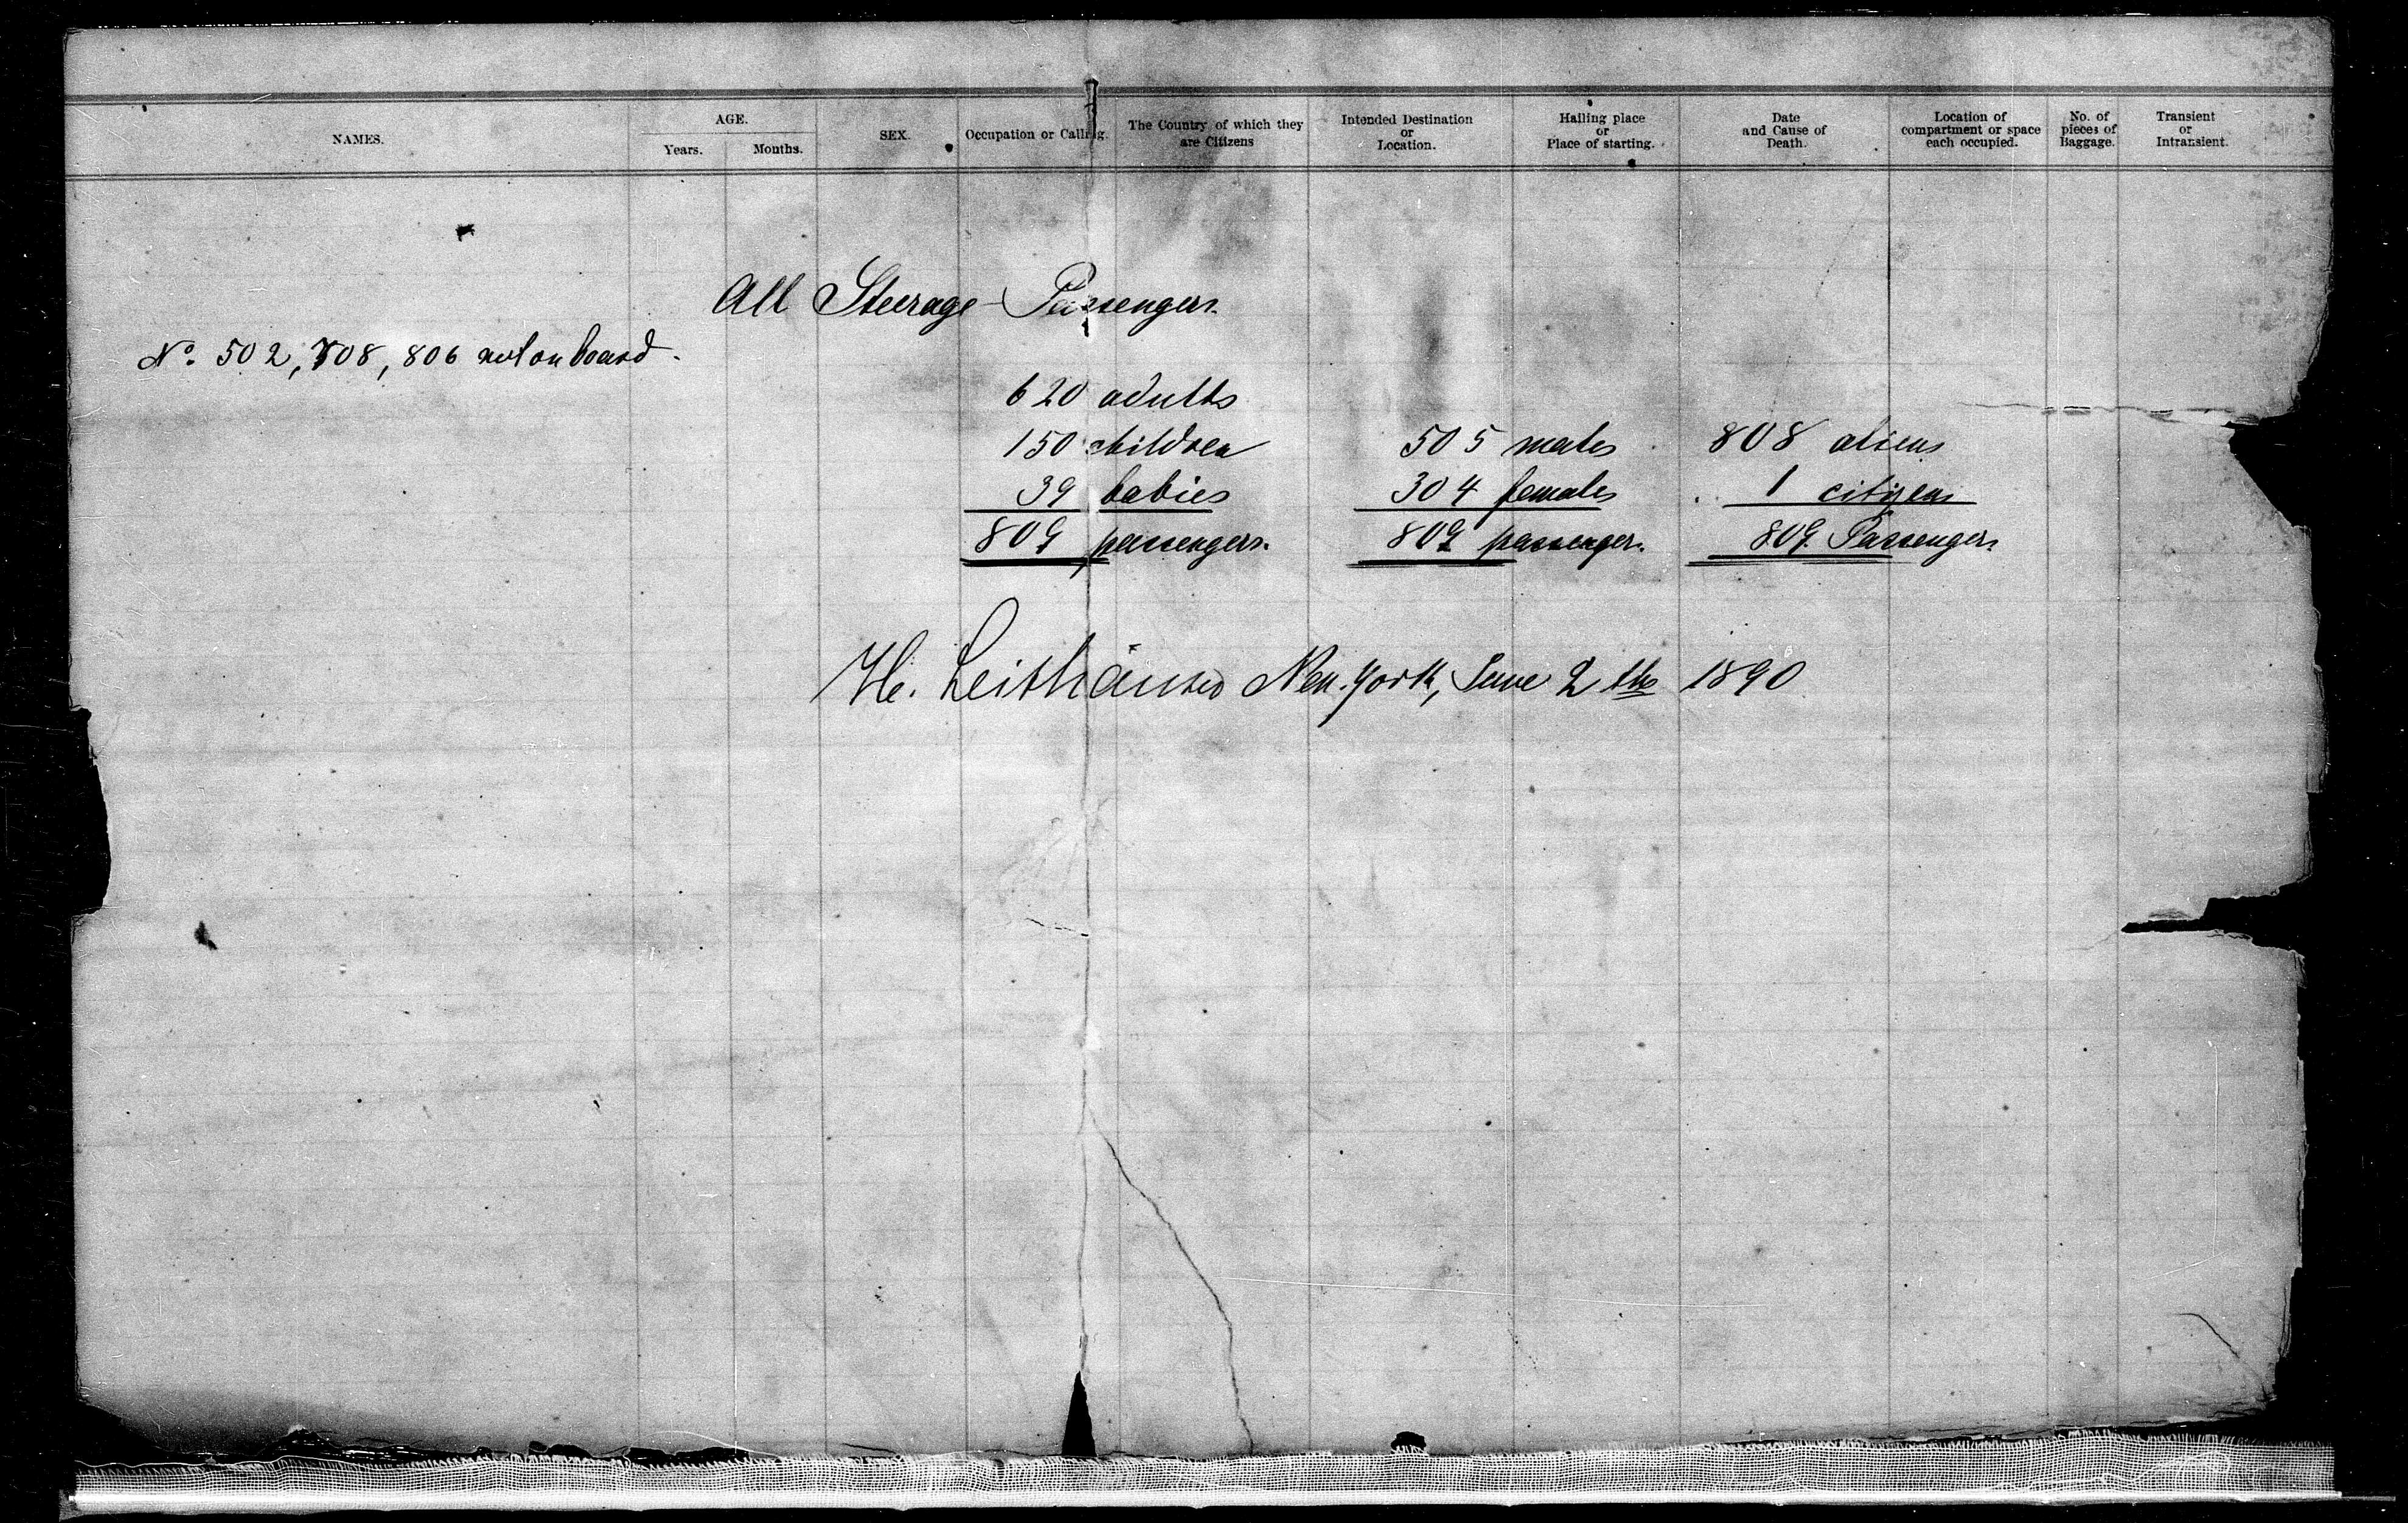 NAMES.
AGE.
Years.
Months.
SEX.
Occupation or Calling.
The Country of which they
are Citizens
Intended Destination
or
Location.
Hailing place
or
Place of starting.
Date
and Cause of
Death.
Location of
compartment or space
each occupied.
No. of
pieces of
Baggage.
Transient
or
Intransient.
All Steerage Passengers.
No. 502, 708, 806 not on board.
620 adults
150 children 505 males 808 aliens
39 babies 304 females 1 citizen
809 passengers. 809 passenger. 809. Passengers.
H. Leithäuser New-York, June 2 th 1890